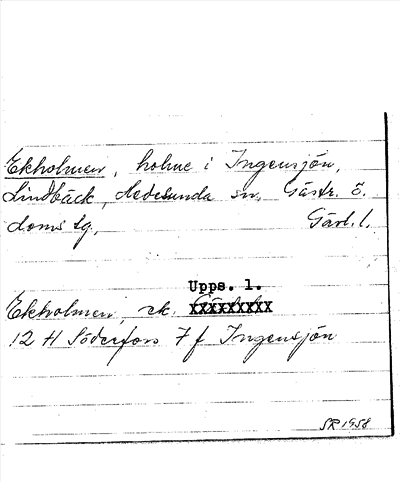 Ekholmen, holme i Ingensjön,
Lindbäck, Hedesunda sn, Gästr. ö.
doms lg, Gävl. l.
Upps. l.
Ekholmen, ek. xxxxxxxxx
12 H Söderfors 7 f Ingensjön
SR 1958